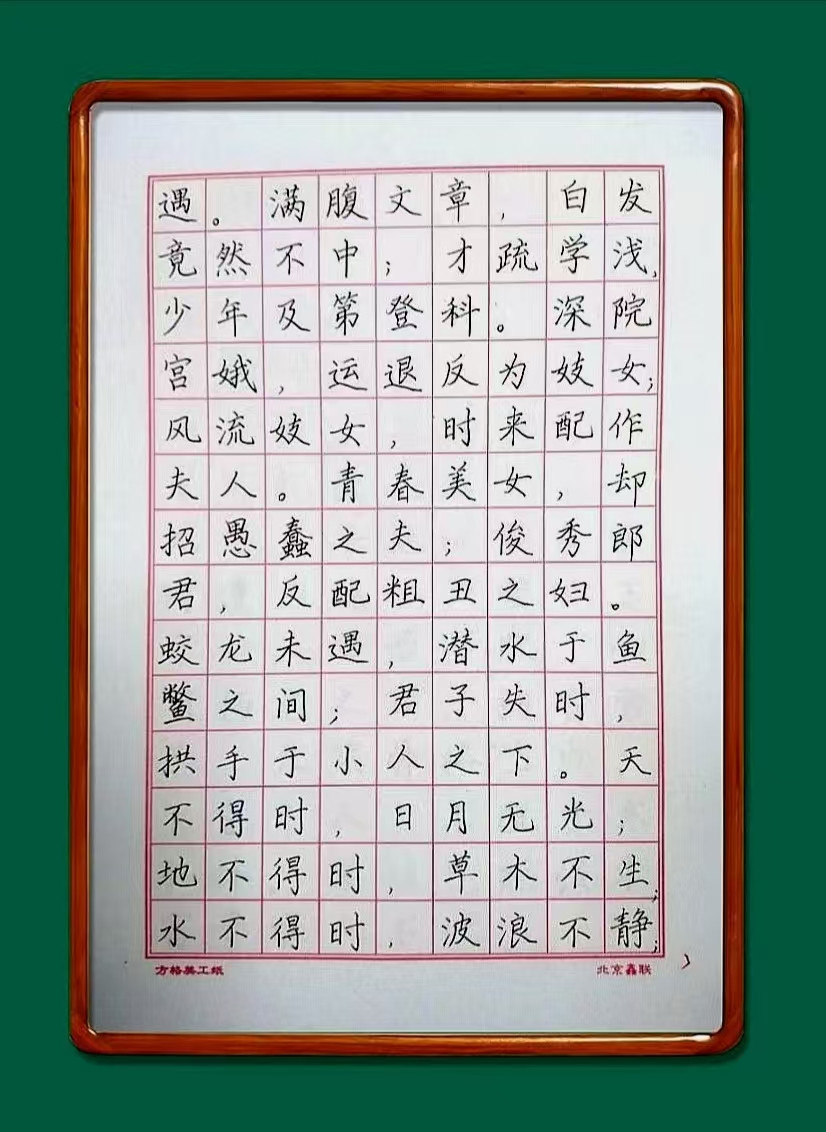 遇。满腹文章,白发
竟然不中;才疏学浅,
少年及第登科。深院
宫娥,运退反为妓女;
风流妓女,时来配作
夫人。青春美女,却
招愚蠢之夫;俊秀郎
君,反配粗丑之妇。
蛟龙未遇,潜水于鱼
鳖之间;君子失时,
拱手于小人之下。天
不得时,日月无光;
地不得时,草木不生;
水不得时,波浪不静;
方格美工纸 北京鑫联